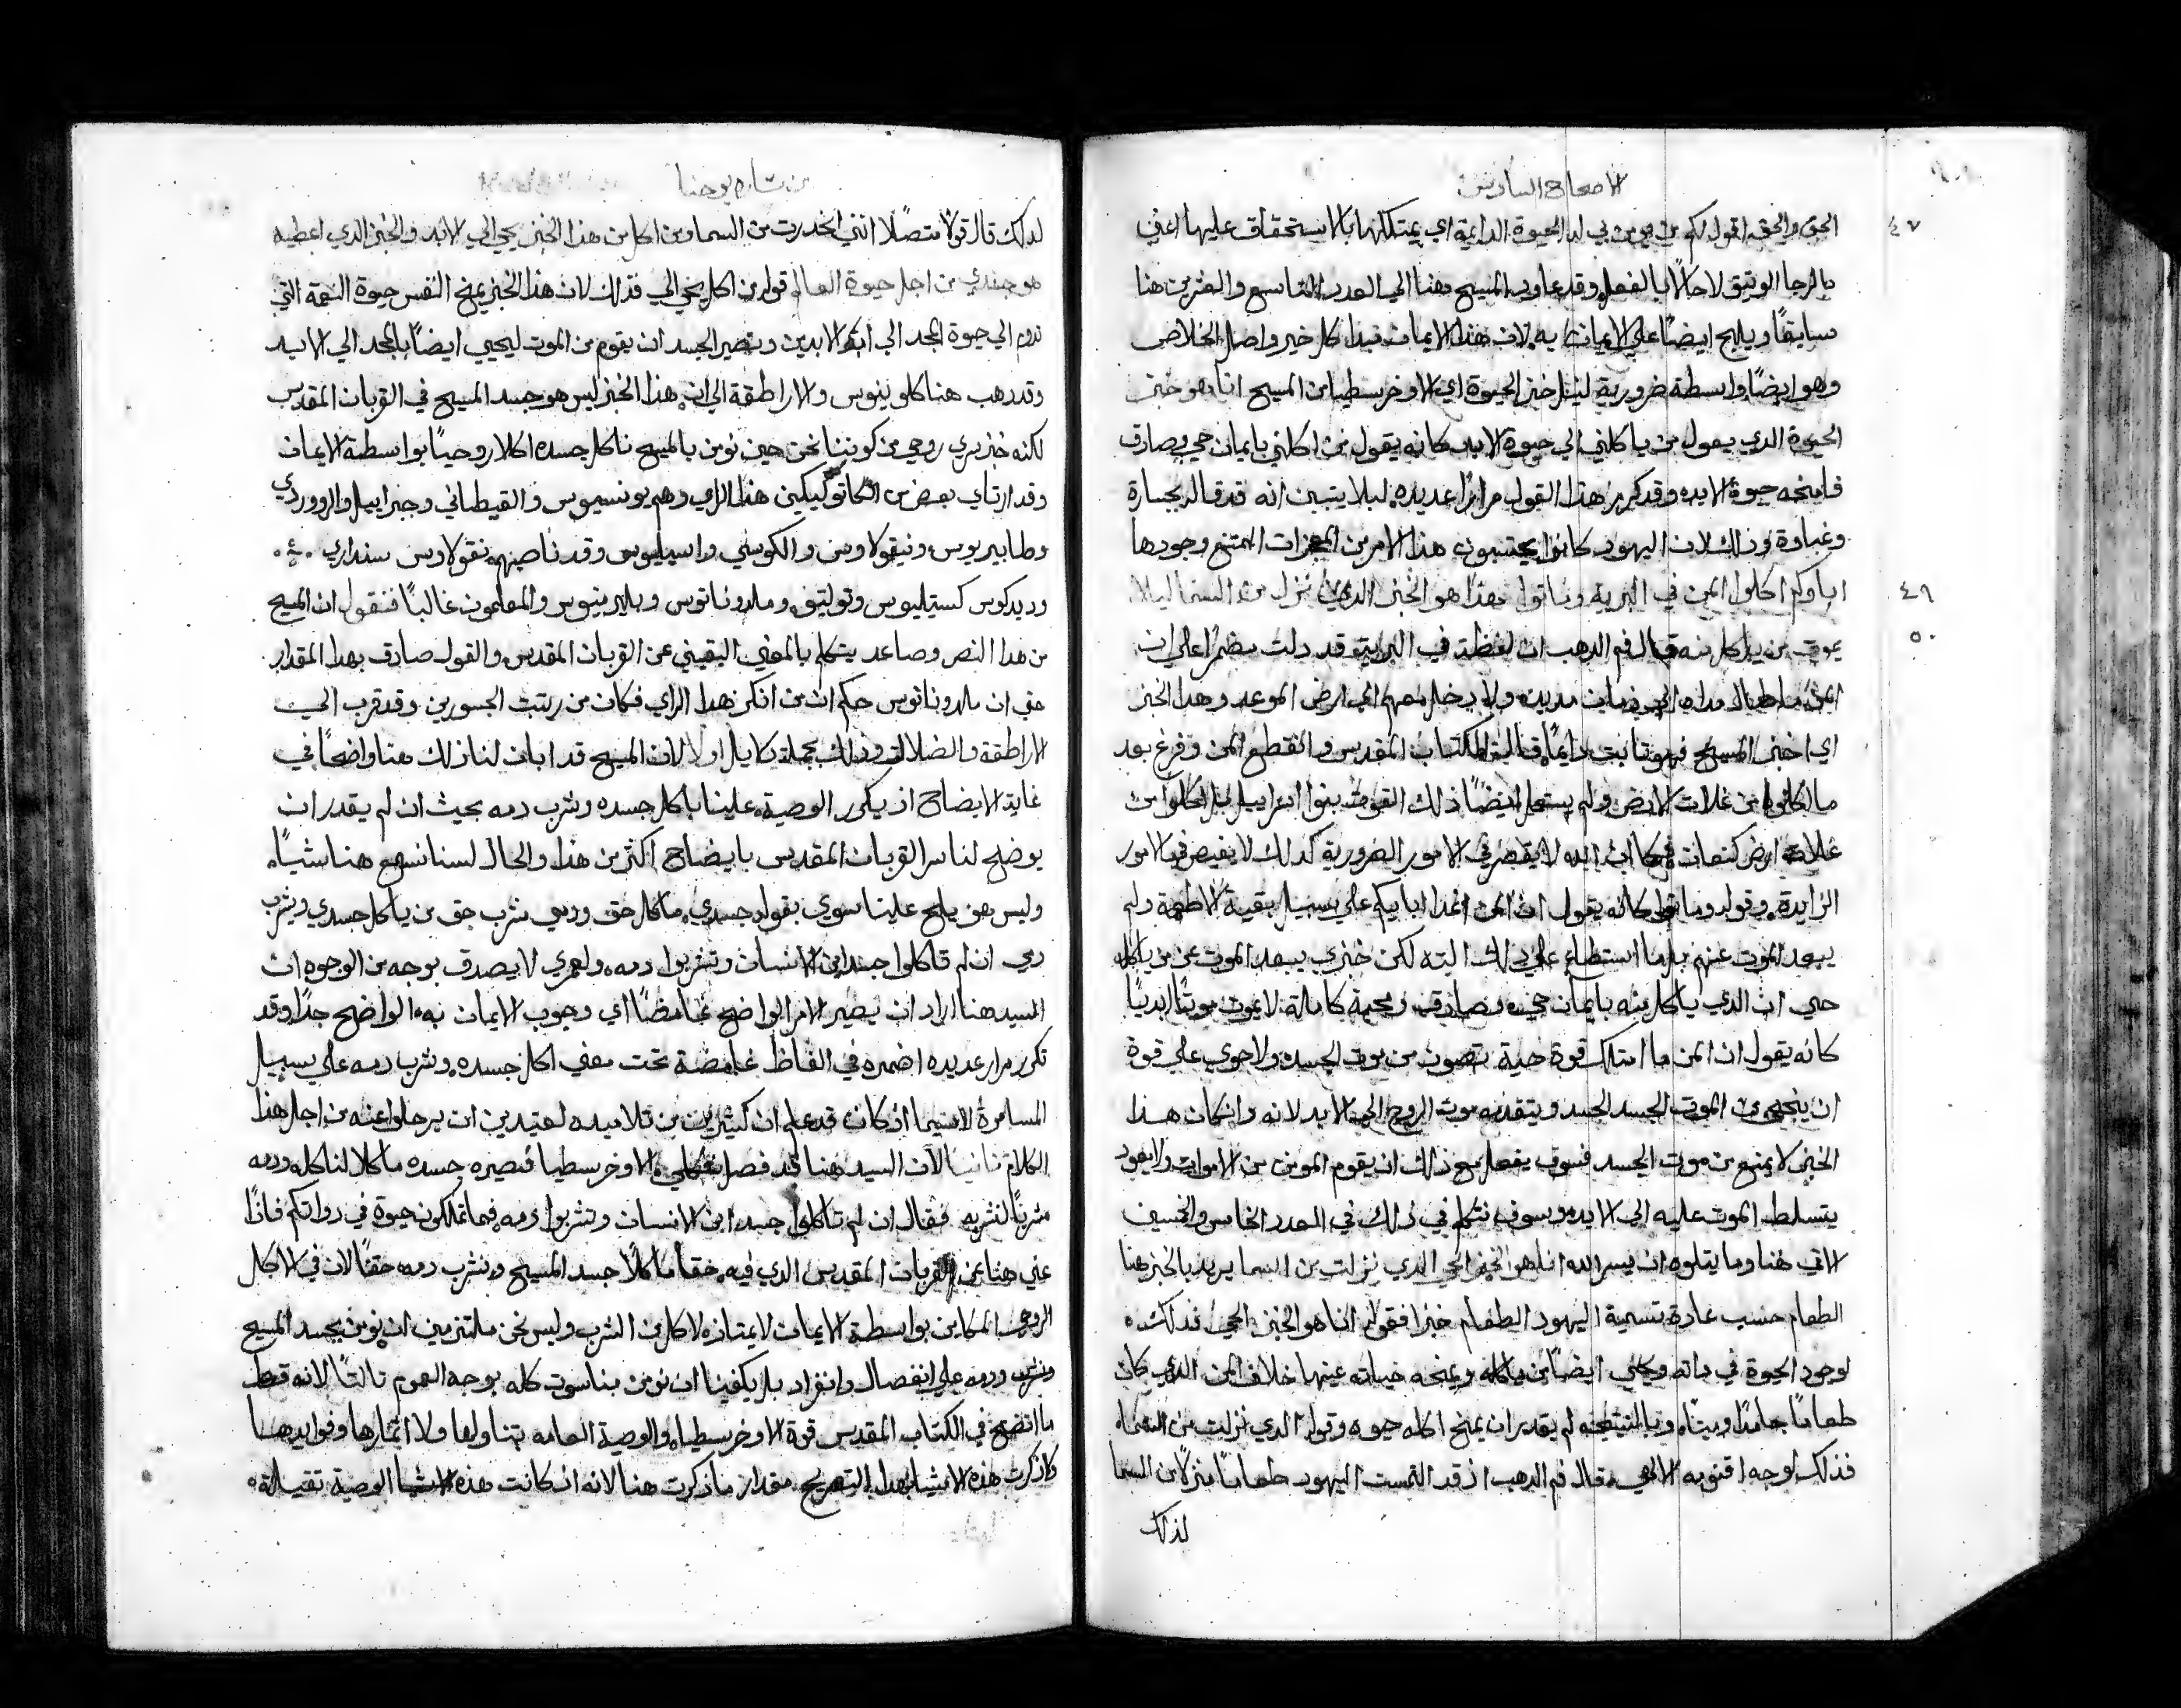 الاصحاح السادس
٤٧
الحق والحق اقول لكم من يومن بي له الحيوة الدايمة اي يمتلكها بالاستحقاق عليها اعني
بالرجا الوتيق لا حالًا بالفعل وقد عاود المسيح هنا الي العدد التاسع والعشرين هنا
سابقًا ويليح ايضًا علي الايمان به لان هذا الايمان مبدا كل خير واصل الخلاص
وهو ايضًا واسطة ضرورية لينال خبز الحيوة اي الاوخرسطيا من المسيح انا هو خبز
الحيوة الدي يعول من ياكلني الي حيوة الابد كانه يقول من اكلني بايمان حي وصادق
فامنحه حيوة الابد وقد كرر هذا القول مرارًا عديده ليلا يتبين انه قد قاله بجسارة
وغباوة وذلك لان اليهود كانوا يحتسبون هذا الامر من المعجزات الممتنع وجودها
٤٩
اباوكم اكلوا المن في البرية وماتوا فهذا هو الخبز الدي نزل من السما ليلا
٥٠
يموت من ياكل منه قال فم الدهب ان لفظة في البرية قد دلت مضمرًا علي ان
المن ما طال مداه الي زمان مديد ولا دخل معهم الي ارض الموعد وهدا الخبز
اي اخبز المسيح فهو تابت دايمًا قال الكتاب المقدس وانقطع المن وفرغ بعد
ما اكلوا من غلات الارض ولم يستعمل ايضًا ذلك القوت بنوا اسراييل بل اكلوا من
غلات ارض كنعان فكما ان الله لا يقصر في الامور الضرورية كدلك لا يفيض في الامور
الزايدة وقوله وماتوا كانه يقول ان المن اغدا اباكم علي سبيل بقية الاطعمة ولم
يبعد الموت عنهم بل ما استطاع علي ذلك البته لكن خبزي يبعد الموت عن من ياكله
حتي ان الدي ياكل منه بايمان حي وصادق ومحبة كاملة لا يموت موتًا ابديًا
كانه يقول ان المن ما امتلك قوة حية تصون من موت الجسد ولا حوي علي قوة
ان ينجي من الموت الجسد الجسد وينقده موت الروح الي الابد لانه وان كان هدا
الخبز لا يمنع من موت الجسد فسوف يفعل مع ذلك ان يقوم المومن من الاموات ولا يعود
يتسلط الموت عليه الي الابد وسوف نتكلم في ذلك في العدد الخامس والخمسين
الاتي هنا وما يتلوه ان يسر الله انا هو الخبز الحي الدي نزلت من السما يريد بالخبز هنا
الطعام حسب عادة تسمية اليهود الطعام خبزا فقوله انا هو الخبز الحي فدلك
لوجود الحيوة في داته ويحيي ايضًا من ياكله ويمنحه حياته عينها خلاف المن الدي كان
طعامًا جامدًا وميتًا وبالنتيجه لم يقدر ان يمنح اكله حيوه وقوله الدي نزلت من السما
فذلك لوجه اقنومه الالهي وقال فم الدهب اذ قد التمست اليهود طعامًا منزلًا من السما
لذلك
من بشارة يوحنا
لدلك قال قولًا متصلًا انني انحدرت من السما ومن اكل من هدا الخبز يحي الي الابد والخبز الدي اعطيه
هو جسدي من اجل حيوة العالم قوله من اكل يحي الي فدلك لان هذا الخبز يمنح النفس حيوة النعمة التي
تدوم الي حيوة المجد الي ابد الابدين وتصير الجسد ان يقوم من الموت ليحيي ايضًا بالمجد الي الابد
وقد دهب هنا كلوينوس والاراطقة الي ان هذا الخبز ليس هو جسد المسيح في القربان المقدس
لكنه خبز سري روحي من كوننا نحن حين نومن بالمسيح ناكل جسده اكلا روحيًا بواسطة الايمان
وقد ارتاي بعض من الكاتوليكين هذا الراي وهم يونسيوس والقيطاني وجبراييل والرووردي
وطابيريوس ونيقولاوس والكوسني واسيليوس وقد ناصبهم نقولاوس سنداري
وديدكوس كستيليوس وتوليتو وملدوناتوس وبليرينيوس والمعلمون غالبًا فنقول ان المسيح
من هدا النص وصاعد يتكلم بالمعني اليقيني عن القربان المقدس والقول صادق بهدا المقدار
حتي ان ملدوناتوس حكم ان من انكر هدا الراي فكان من رتبت الجسورين وقد قرب الي
الاراطقة والضلالة وذلك بجملة دلايل اولا لان المسيح قد ابان لنا ذلك هنا واضحًا في
غاية الايضاح اذ يكرر الوصية علينا باكل جسده وشرب دمه بحيث ان لم يقدر ان
يوضح لنا سر القربان المقدس بايضاح اكثر من هذا والحال لسنا نسمع هنا شيًا
وليس هو يليح علينا سوي بقوله جسدي ماكل حق ودمي مشرب حق من ياكل جسدي ويشرب
دمي ان لم تاكلوا جسد ابن الانسان وتشربوا دمه ولعمري لا يصدق بوجه من الوجوه ان
السيد هنا اراد ان يصير الامر الواضح غامضًا اي وجوب الايمان به الواضح جدًا وقد
تكرر مرار عديده اضمره في الفاظ غامضة تحت معني اكل جسده وشرب دمه علي سبيل
المسامرة لاسيما اذ كان قد علم ان كثيرين من تلاميده لعتيدين ان يرحلوا عنه من اجل هذا
الكلام تانيا لان السيد هنا قد فصل الاوخرسطيا فتصيره جسده ماكلا لناكله ودمه
مشربًا لنشربه فقال ان لم تاكلوا جسد ابن الانسان وتشربوا دمه فما تملكون حيوة في دواتكم فاذًا
عني هنا عن القربان المقدس الدي فيه حقا ناكل جسد المسيح ونشرب دمه حقًا لان في الاكل
الروحي المكاين بواسطة الايمان لا يمتاز الاكل من الشرب وليس نحن ملتزمين ان نومن بجسد المسيح
ودمه علي انفصال وانفراد بل يكفينا ان نومن بناسوت كله بوجه العموم تالتًا لانه قط
ما اتضح في الكتاب المقدس قوة الاوخرسطيا والوصية العامه بتناولها ولا اثمارها وفوايدها
وان ذكرت هذه الاشيا بهدا التصريح مقدار ما ذكرت هنا لانه ان كانت هذه الوصية تقيلة